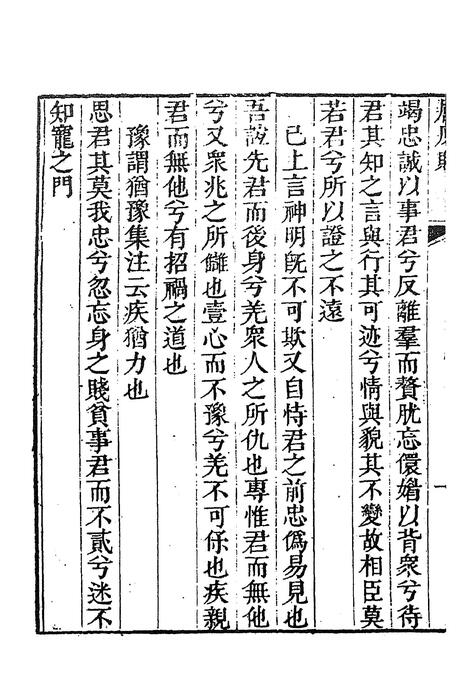 竭忠誠以事君兮反離羣而贅肬忘儇媚以背衆兮待
君其知之言與行其可迹兮情與貌其不變故相臣莫
若君兮所以證之不遠
已上言神明旣不可欺又自恃君之前忠僞易見也
吾誼先君而後身兮羌衆人之所仇也專惟君而無他
兮又衆兆之所讎也壹心而不豫兮羌不可保也疾親
君而無他兮有招禍之道也
豫謂猶豫集注云疾猶力也
思君其莫我忠兮忽忘身之賤貧事君而不貳兮迷不
知寵之門